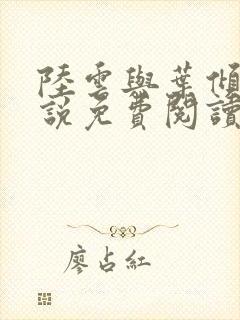 陸雲與葉傾
說免費閱讀
廖占紅